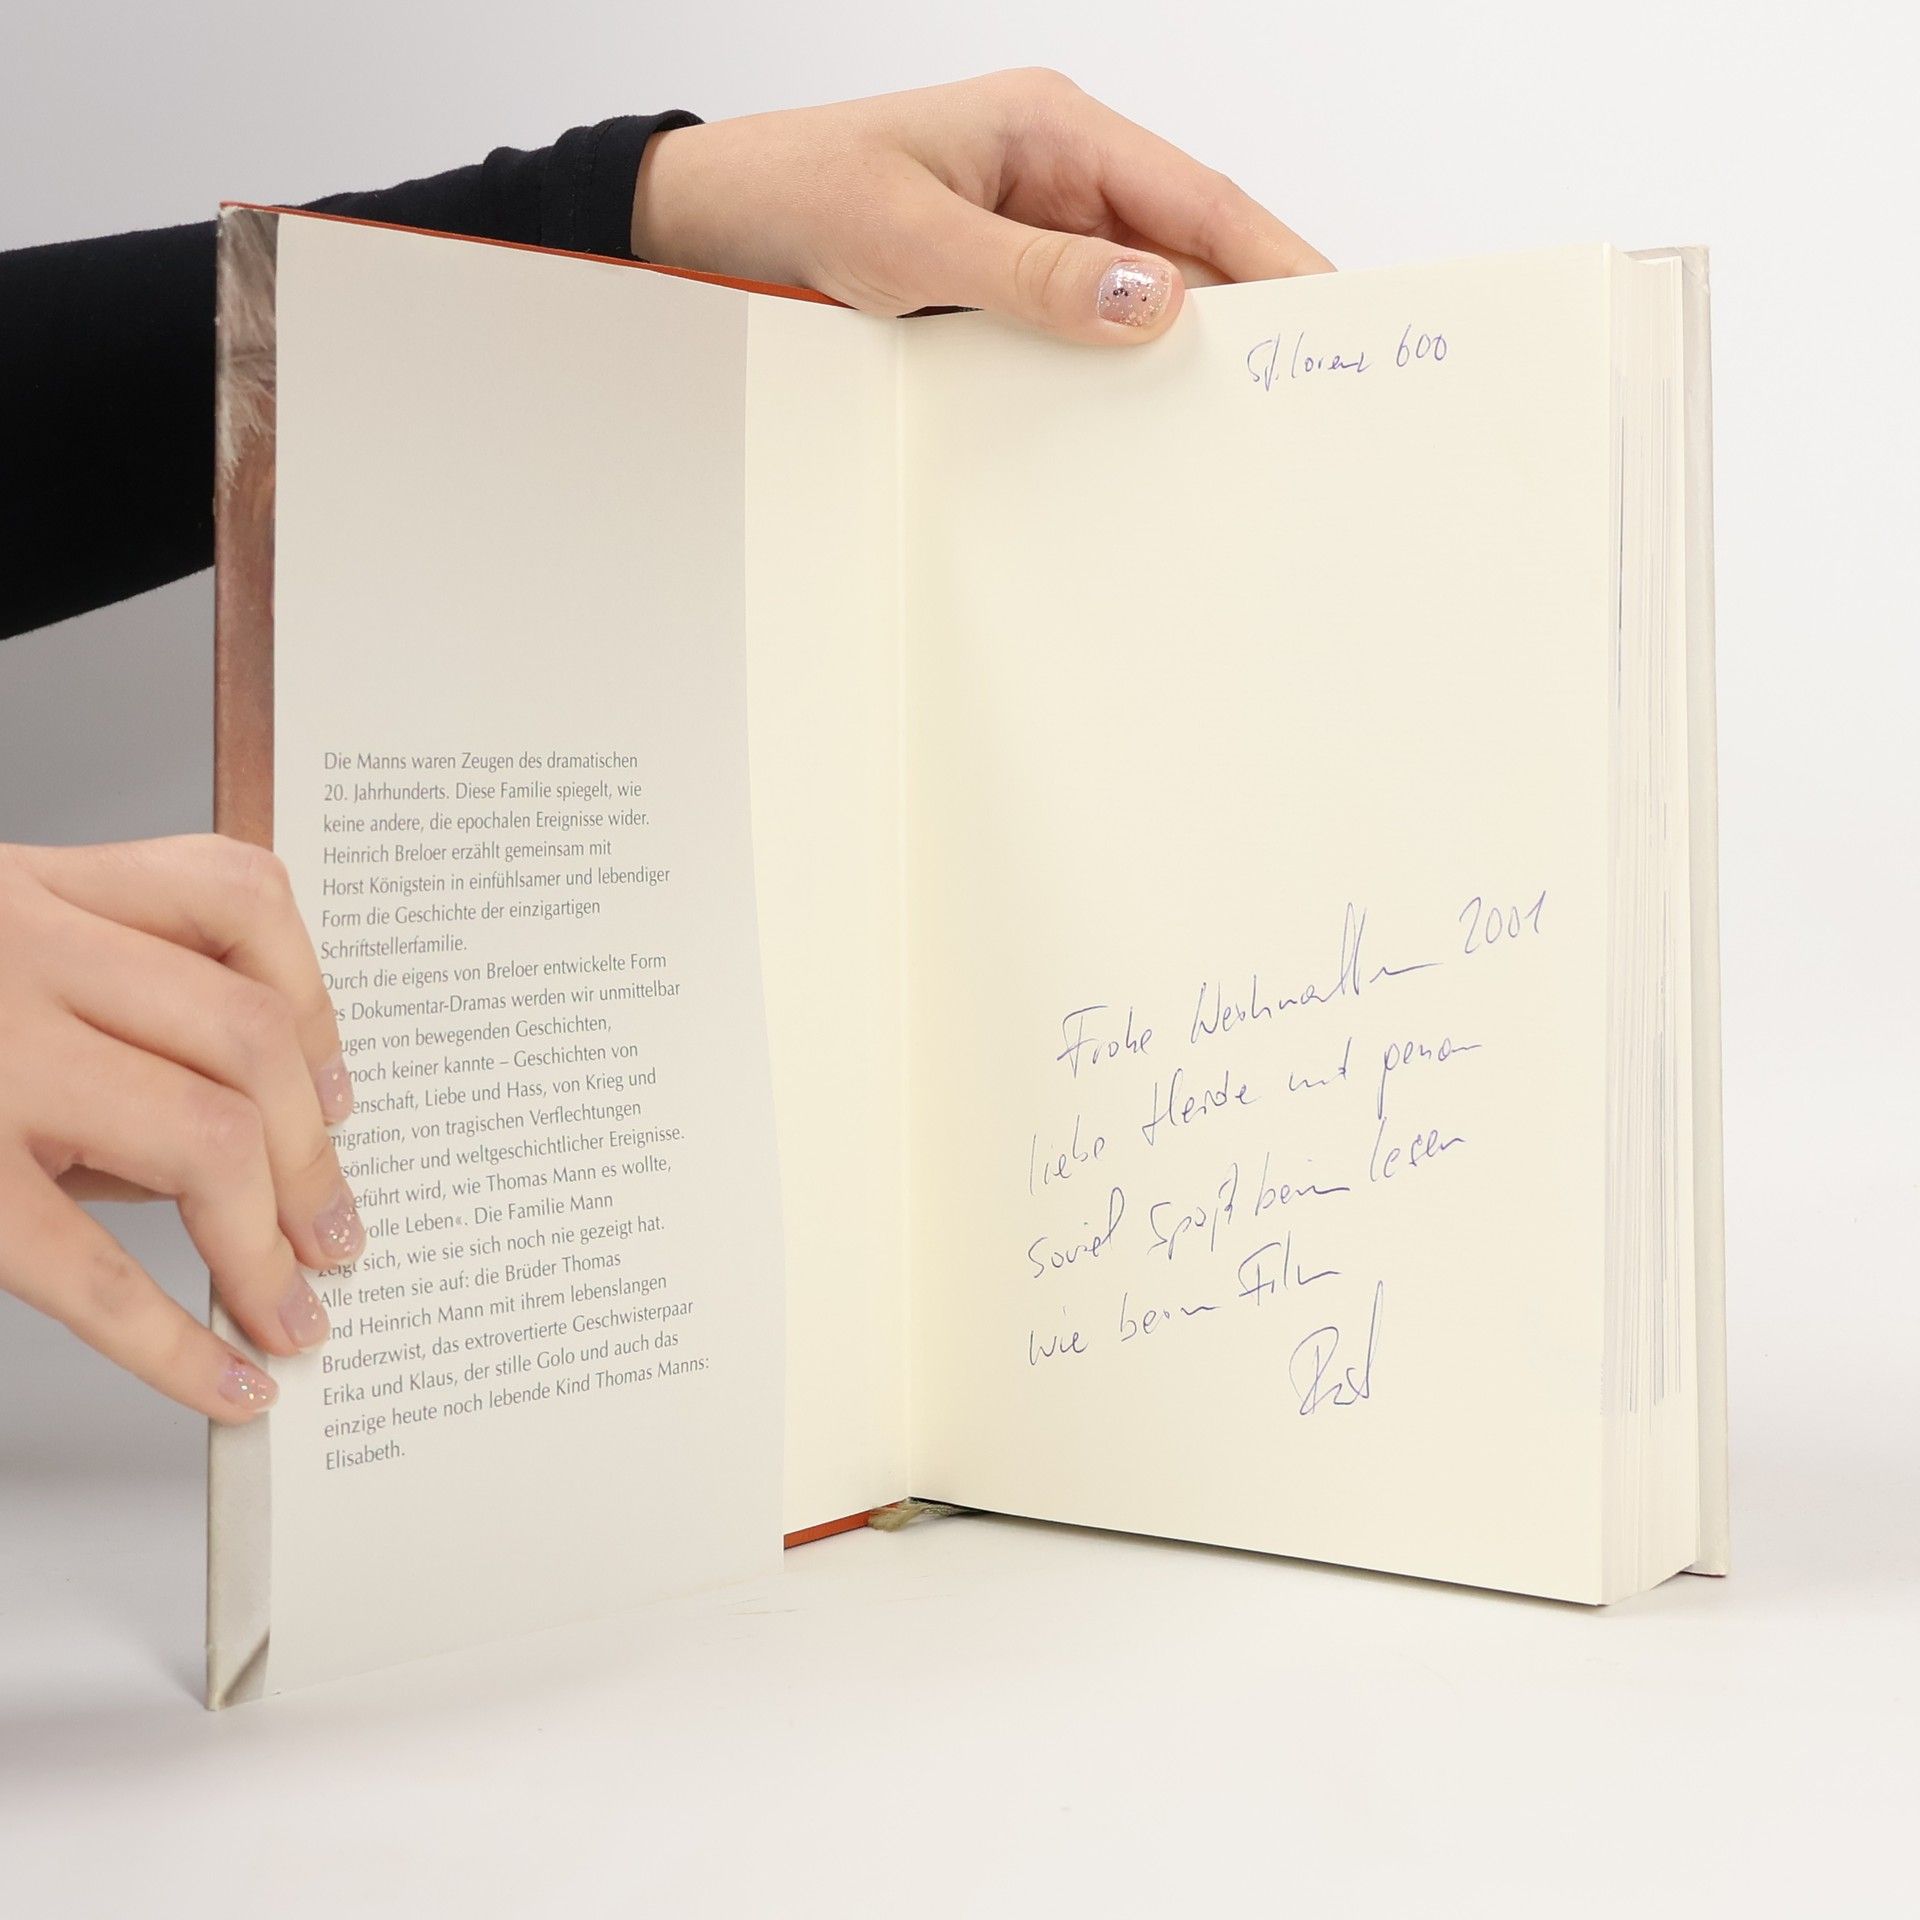 Die Manns waren Zeugen des dramatischen
20. Jahrhunderts. Diese Familie spiegelt, wie
keine andere, die epochalen Ereignisse wider.
Heinrich Breloer erzählt gemeinsam mit
Horst Königstein in einfühlsamer und lebendiger
Form die Geschichte der einzigartigen
Schriftstellerfamilie.
Durch die eigens von Breloer entwickelte Form
es Dokumentar-Dramas werden wir unmittelbar
ugen von bewegenden Geschichten,
noch keiner kannte – Geschichten von
enschaft, Liebe und Hass, von Krieg und
migration, von tragischen Verflechtungen
rsönlicher und weltgeschichtlicher Ereignisse.
eführt wird, wie Thomas Mann es wollte,
volle Leben«. Die Familie Mann
zeigt sich, wie sie sich noch nie gezeigt hat.
Alle treten sie auf: die Brüder Thomas
und Heinrich Mann mit ihrem lebenslangen
Bruderzwist, das extrovertierte Geschwisterpaar
Erika und Klaus, der stille Golo und auch das
einzige heute noch lebende Kind Thomas Manns:
Elisabeth.
St. Lorenz 600
Frohe Weihnachten 2001
liebe Heide und genau
soviel Spaß beim lesen
wie beim Film